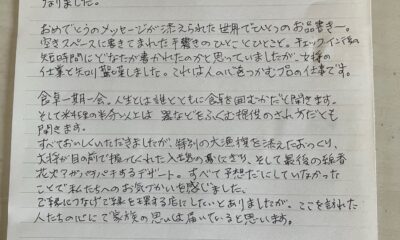 なりました。
おめでとうのメッセージが添えられた世界でひとつのお品書き一。
空きスペースに書きこまれた手書きのひとことひとこと。チェックイン後の
短時間にどなたが書かれたのかと思っていましたが、女将の
仕業と知り驚嘆しました。これは人の心をつかむプロの仕事です。
食卓一期一会。人生とは誰とともに食卓を囲むかだと聞きます。
そして料理の半分以上は 器などをふくむ 提供のされ方だとも
聞きます。
すべておいしくいただきましたが、特別の大漁旗を添えたおつくり、
大将が目の前で握ってくれた 入魂の寿司にぎり、そして最後の線香
花火がパチパチするデザート。すべて予想だにしていなかった
ことで私たちへのお気づかいを感じました。
ご縁につなげて縁を運ぶ店にしたいとありましたが、ここを訪れた
人たちの心にご家族の思いは届いていると思います。